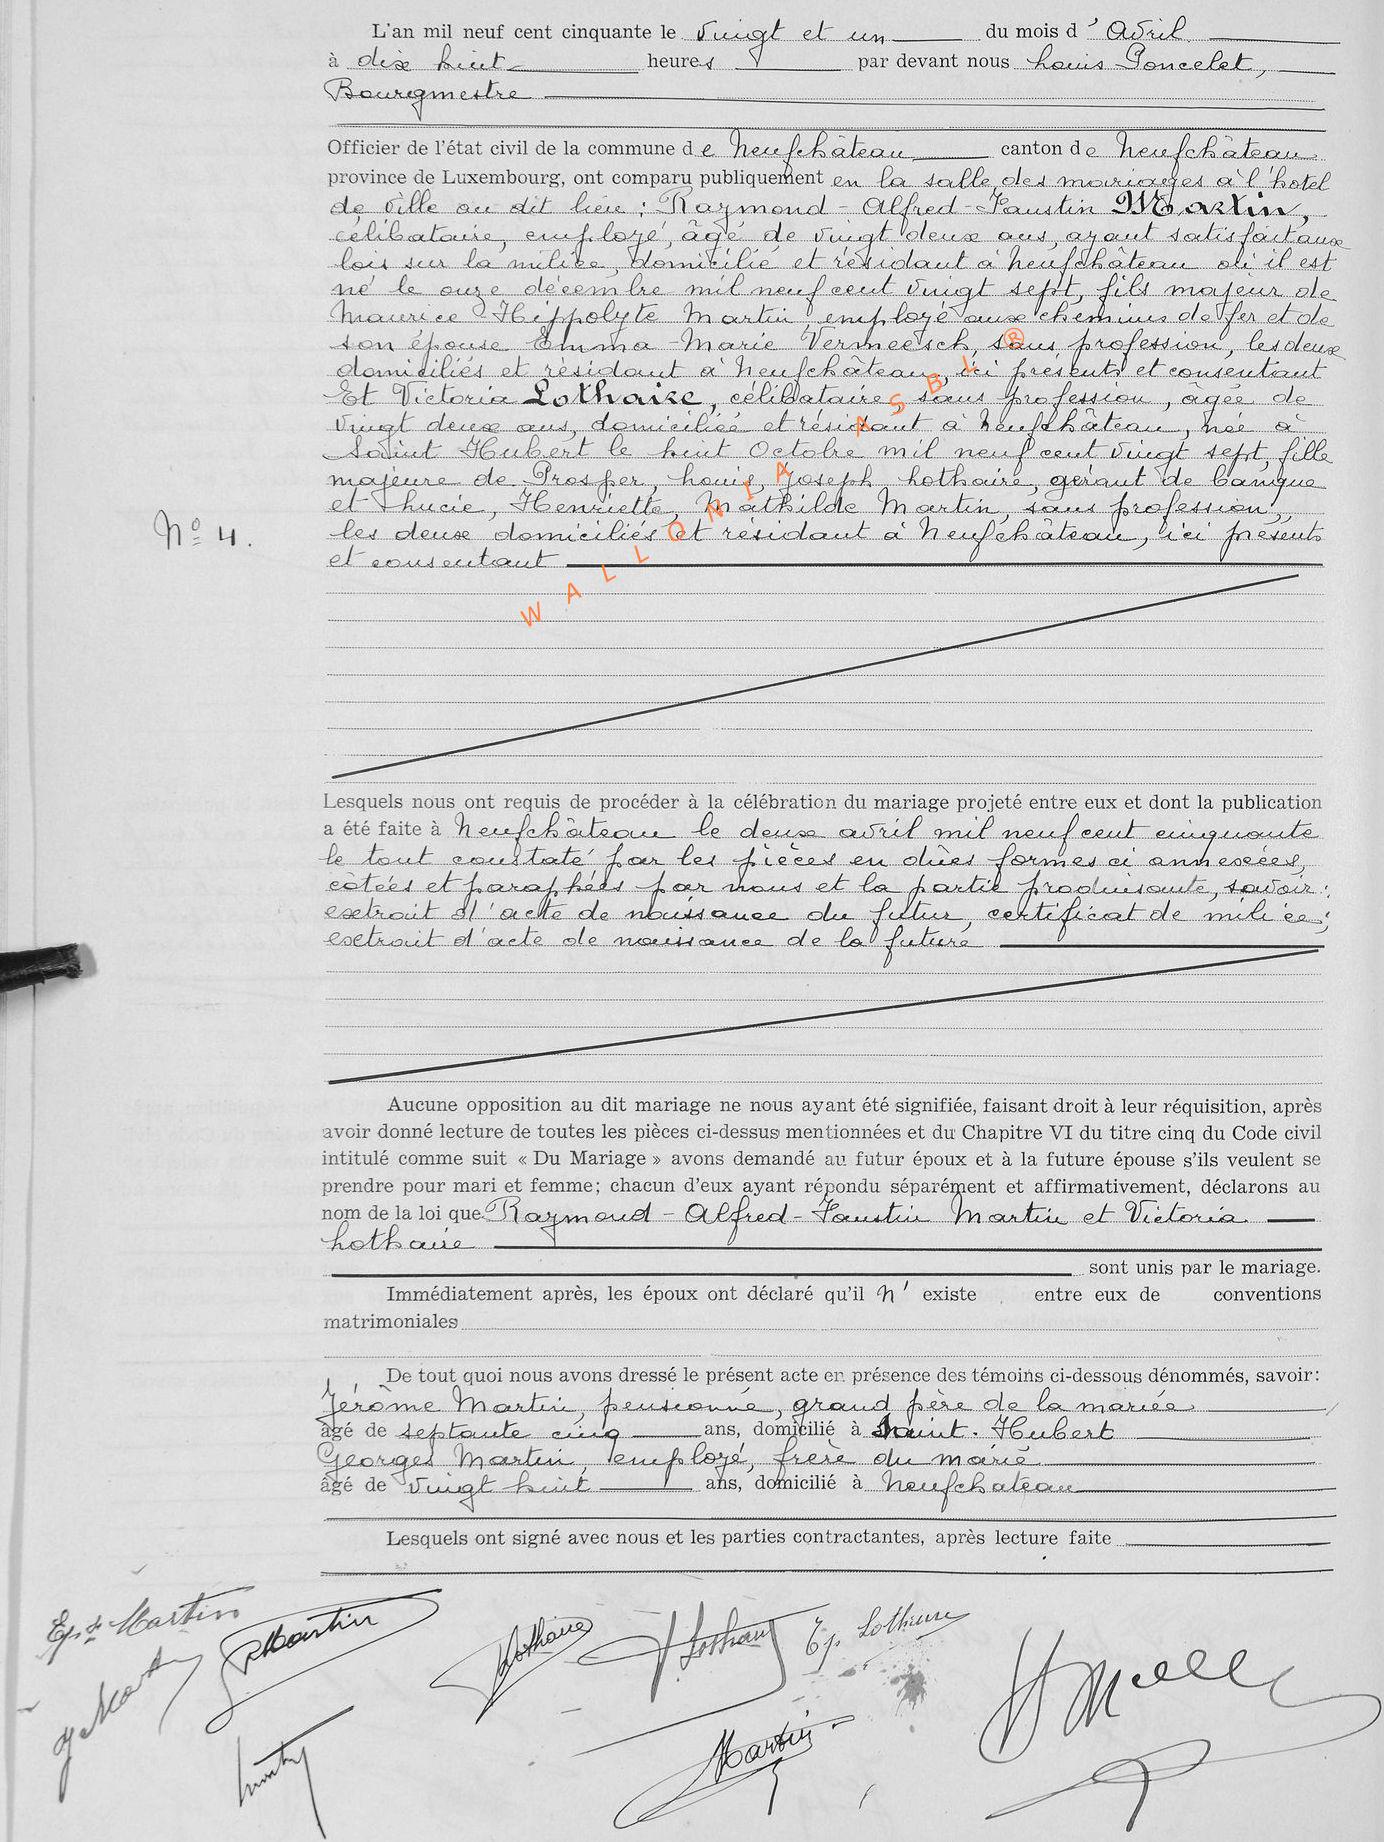 L'an mil neuf cent cinquante le vingt et un du mois d' Avril
à dix huit heures par devant nous Louis Poncelet,
Bourgmestre
Officier de l'état civil de la commune de Neufchâteau canton de Neufchâteau
province de Luxembourg, ont comparu publiquement en la salle des mariages à l'hotel
de ville au dit lieu : Raymond - Alfred - Faustin Martin,
célibataire, employé, âgé de vingt deux ans, ayant satisfait aux
lois sur la milice, domicilié et résidant à Neufchâteau où il est
né le onze décembre mil neuf cent vingt sept, fils majeur de
Maurice Hippolyte Martin employé aux chemins de fer et de
son épouse Emma - Marie Vermeesch, sans profession, les deux
domiciliés et résidant à Neufchâteau, ici présents et consentant
Et Victoria Lothaire, célibataire, sans profession, âgée de
vingt deux ans, domiciliée et résidant à Neufchâteau, née à
Saint Hubert le huit Octobre mil neuf cent vingt sept, fille
majeure de Prosper, Louis, Joseph Lothaire, gérant de banque
et Lucie, Henriette, Mathilde Martin, sans profession,
N° 4.
les deux domiciliés et résidant à Neufchâteau, ici présents
et consentant
WALLONIA ASBL ®
Lesquels nous ont requis de procéder à la célébration du mariage projeté entre eux et dont la publication
a été faite à Neufchâteau le deux avril mil neuf cent cinquante
le tout constaté par les pièces en dûes formes ci annexées,
côtées et paraphées par nous et la partie produisante, savoir :
extrait d'acte de naissance du futur, certificat de milice;
extrait d'acte de naissance de la future
Aucune opposition au dit mariage ne nous ayant été signifiée, faisant droit à leur réquisition, après
avoir donné lecture de toutes les pièces ci-dessus mentionnées et du Chapitre VI du titre cinq du Code civil
intitulé comme suit « Du Mariage » avons demandé au futur époux et à la future épouse s'ils veulent se
prendre pour mari et femme; chacun d'eux ayant répondu séparément et affirmativement, déclarons au
nom de la loi que Raymond - Alfred - Faustin Martin et Victoria
Lothaire
sont unis par le mariage.
Immédiatement après, les époux ont déclaré qu'il n' existe entre eux de conventions
matrimoniales
De tout quoi nous avons dressé le présent acte en présence des témoins ci-dessous dénommés, savoir:
Jérôme Martin, pensionné, grand père de la mariée
âgé de septante cinq ans, domicilié à Saint-Hubert
Georges Martin, employé, frère du marié
âgé de vingt huit ans, domicilié à Neufchateau
Lesquels ont signé avec nous et les parties contractantes, après lecture faite
Ep. Martin
Martin
Lothaire
Lothaire
Ep Lothaire
Martin